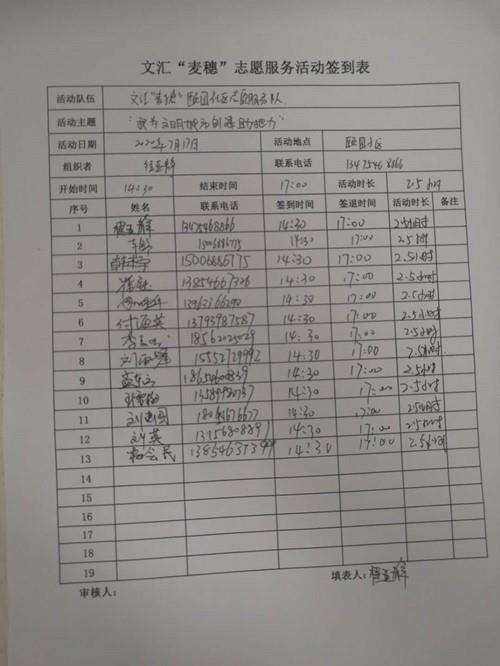 文汇“麦穗”志愿服务活动签到表
活动队伍 文汇“麦穗”颐园社区志愿服务队
活动主题 “我为文明城市创建助把力”
活动日期 2020年7月17日 活动地点 颐园社区
组织者 联系电话 13475468866
开始时间 14:30 结束时间 17:00 活动时长 2.5小时
序号 姓名 联系电话 签到时间 签退时间 活动时长 备注
1 13475468866 14:30 17:00 2.5小时
2 15006886775 14:30 17:00 2.5小时
3 15006886775 14:30 17:00 2.5小时
4 13854667326 14:30 17:00 2.5小时
5 14:30 17:00 2.5小时
6 付西英 13793987587 14:30 17:00 2.5小时
7 18562025029 14:30 17:00 2.5小时
8 15552729992 14:30 17:00 2.5小时
9 14:30 17:00 2.5小时
10 14:30 17:00 2.5小时
11 刘建国 14:30 17:00 2.5小时
12 刘英 14:30 17:00 2.5小时
13 杨会民 13854637399 14:30 17:00 2.5小时
14
15
16
17
18
19
审核人： 填表人：